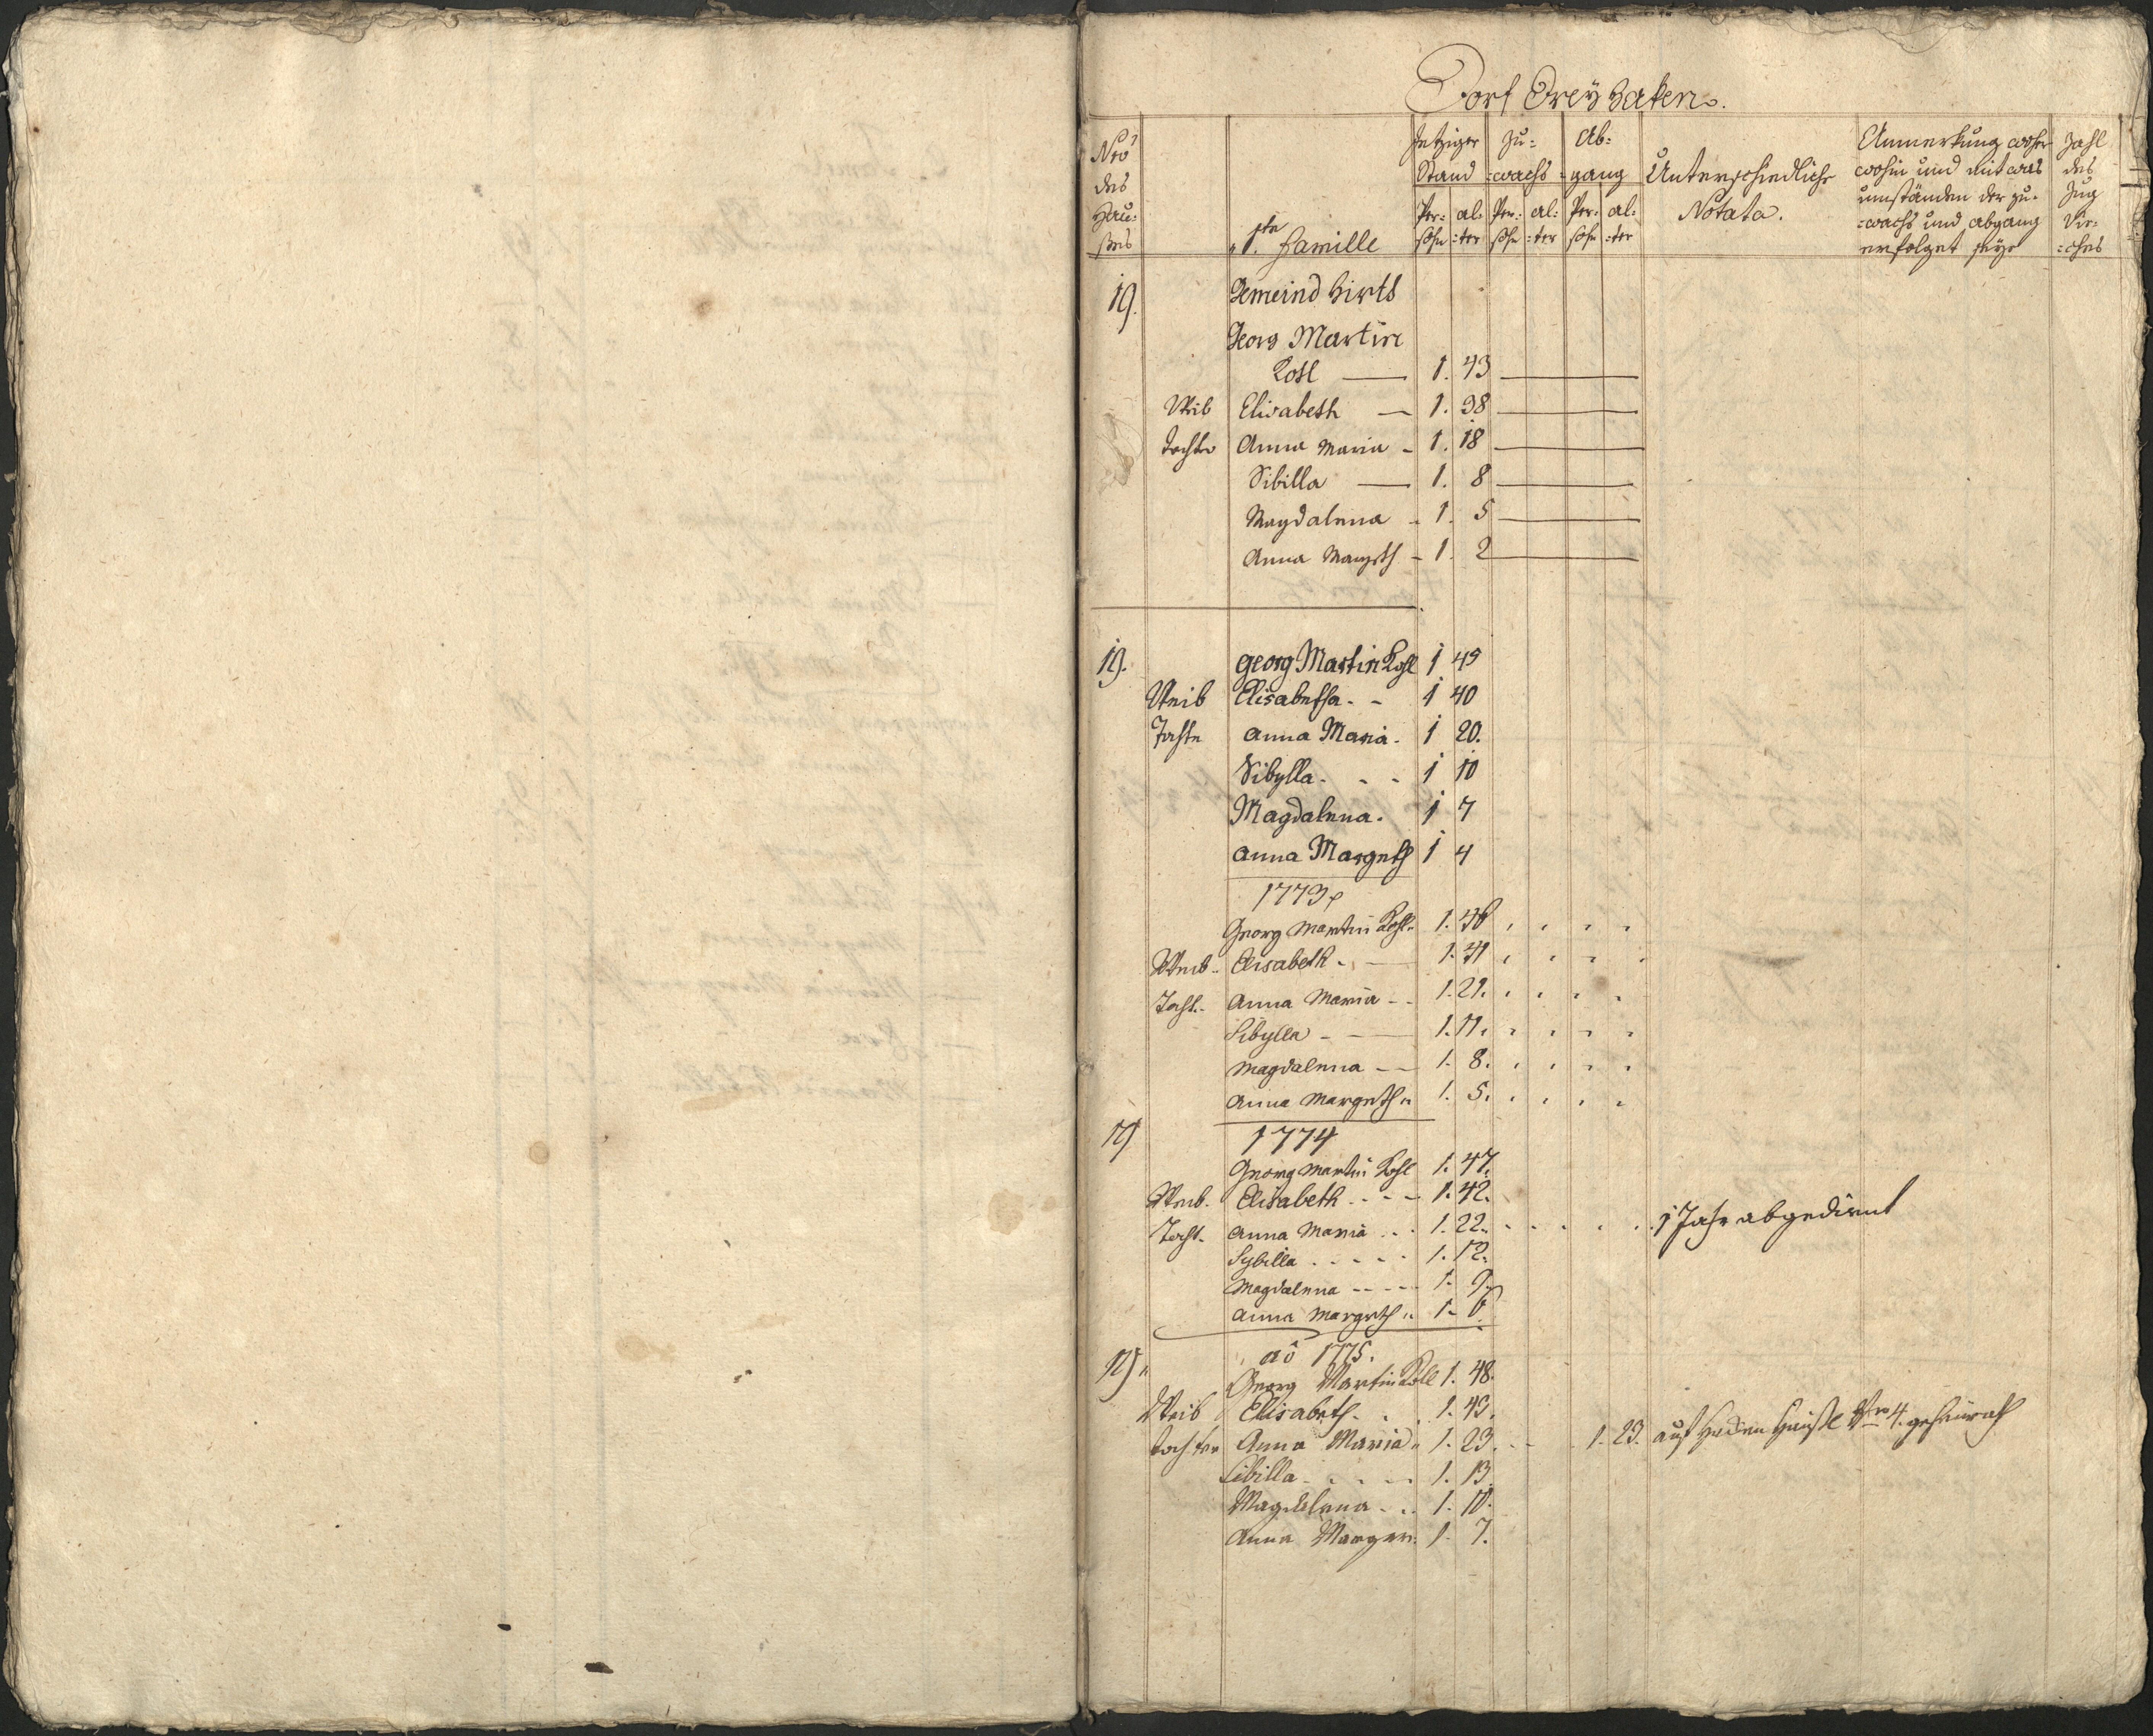 Dorf Dreÿ Haken.
Nro des Hau: ßes
1te Familie
Jetziger Stand
Zu: =wachs
Ab: =gang
Per= sohn al: =ter Per= sohn al: =ter Per= sohn al: =ter
Unterschiedliche Notata.
Anmerkung woher wohin und mit was umständen der zu= =wachs und abgang erfolget seye
Zahl des Zug Vie= =ches
19. Gemeind Hirth
Georg Martin
Kohl 1. 43
Weib Elisabeth 1. 38
Tochter Anna Maria 1. 18
Sibilla 1. 8
Magdalena 1. 5
Anna Margeth 1. 2
19. Georg Martin Kohl 1 45
Weib Elisabetha 1 40
Tochte Anna Maria. 1 20.
Sibylla 1 10
Magdalena. 1 7
Anna Margreth 1 4
1773
Georg Martin Kohl 1. 46
Weib Elisabeth 1. 41
Tocht. Anna Maria 1. 21.
Sibylla 1. 11.
Magdalena 1. 8.
Anna Margreth 1. 5.
19 1774
Georg Martin Kohl 1. 47.
Weib. Elisabeth 1. 42.
Tocht. Anna Maria 1. 22. 1 Jahr abgedient
Sybilla 1. 12.
Magdalena 1. 9.
Anna Margreth 1. 6.
19 aô 1775.
Georg Martin Kohl 1. 48.
Weib Elisabeth 1. 43.
Tochter Anna Maria 1. 23. 1. 23. auf Heüßl Nro 4. geheürath
Sibilla 1. 13.
Magdalena 1. 10.
Anna Marger. 1. 7.